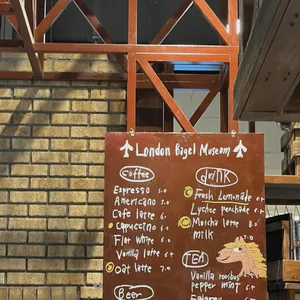 London Bagel Museum
Coffee
Espresso 5.0
Americano 5.0
Cafe latte 6.
Cappuccino 6.
Flat white 6.
Vanilla latte 6.5
Oat latte 7.0
Beer
drink
Fresh Lemonade
Lychee
Matcha latte 8.
milk
TEA
Vanilla rooibos
pepper mint